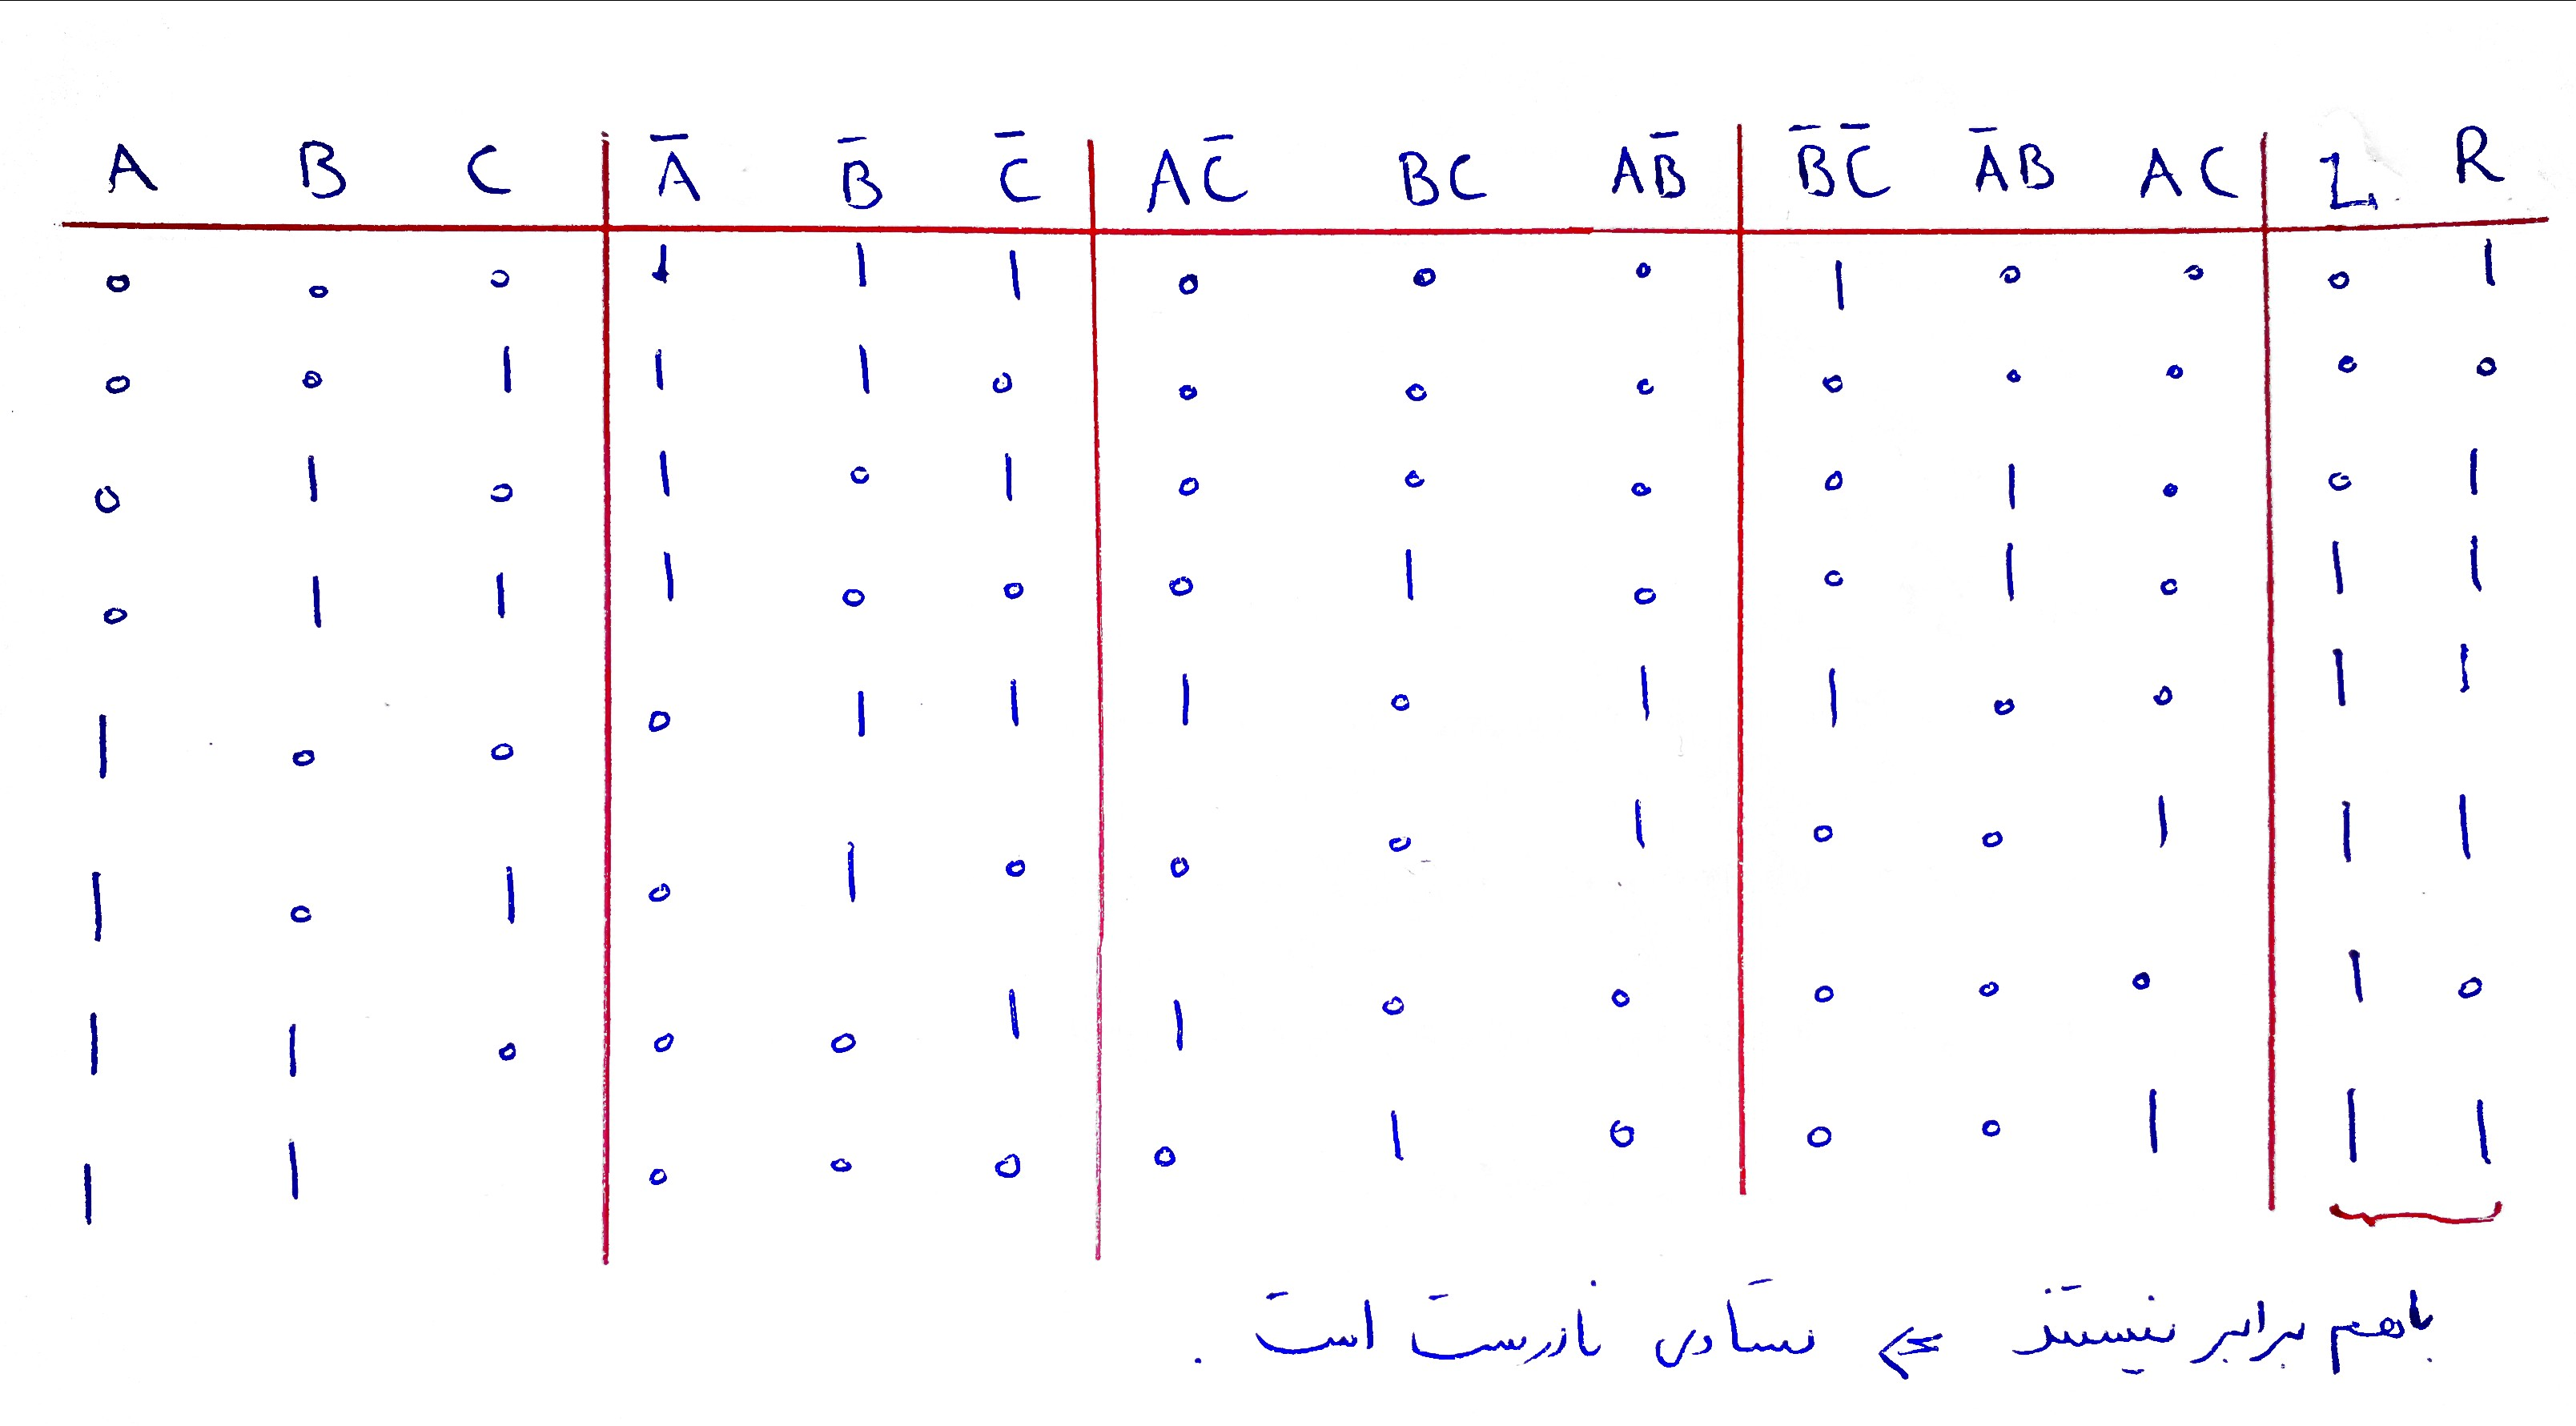 A B C A̅ B̅ C̅ AC̅ BC AB̅ B̅C̅ A̅B AC L R
0 0 0 1 1 1 0 0 0 1 0 0 0 1
0 0 1 1 1 0 0 0 0 0 0 0 0 0
0 1 0 1 0 1 0 0 0 0 1 0 0 1
0 1 1 1 0 0 0 1 0 0 1 0 1 1
1 0 0 0 1 1 1 0 1 1 0 0 1 1
1 0 1 0 1 0 0 0 1 0 0 1 1 1
1 1 0 0 0 1 1 0 0 0 0 0 1 0
1 1 0 0 0 0 1 0 0 0 1 1 1
باهم برابر نیستند ⇐ تساوی نادرست است.